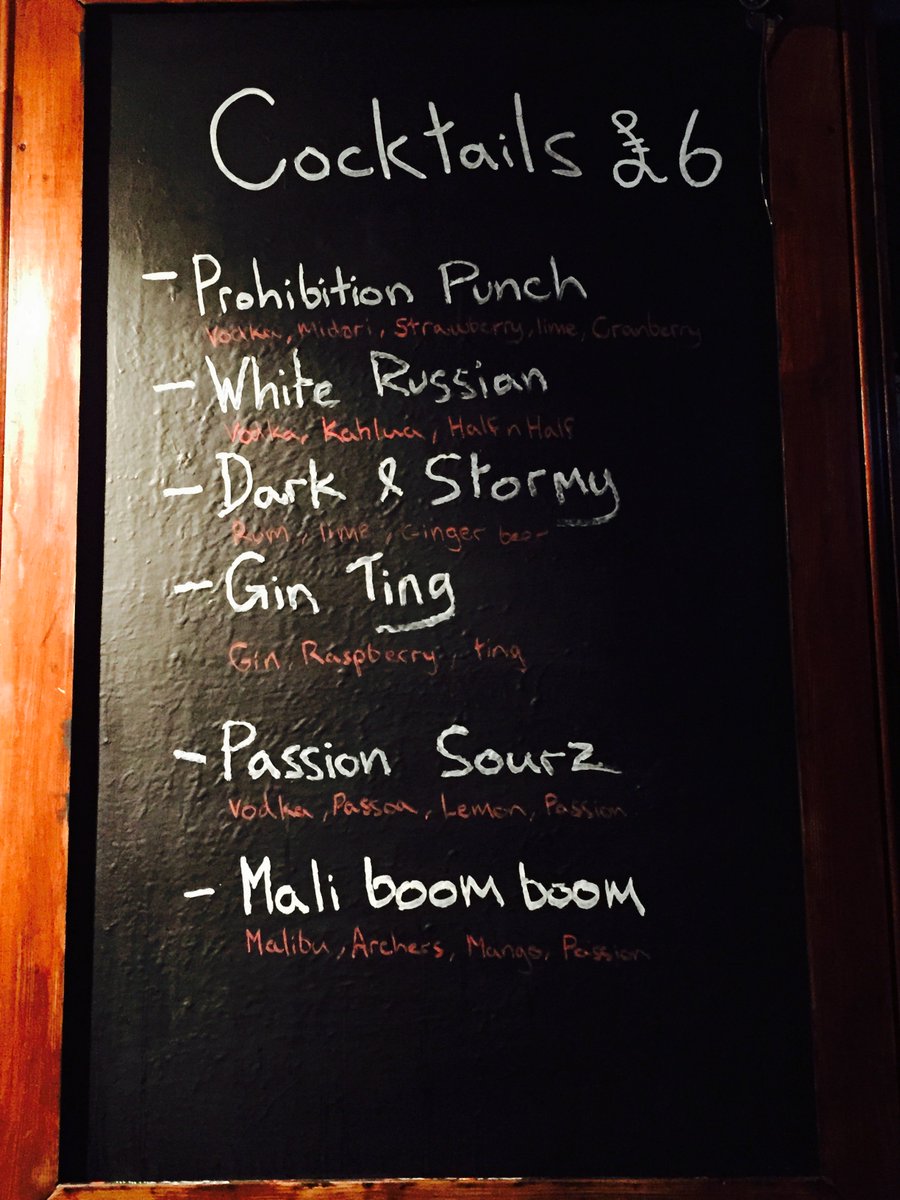 Cocktails £6
- Prohibition Punch
Vodka, Midori, Strawberry, lime, Cranberry
- White Russian
Vodka, Kahlua, Half n Half
- Dark & Stormy
Rum, lime, Ginger beer
- Gin Ting
Gin, Raspberry, ting
- Passion Sourz
Vodka, Passoa, Lemon, Passion
- Mali boom boom
Malibu, Archers, Mango, Passion